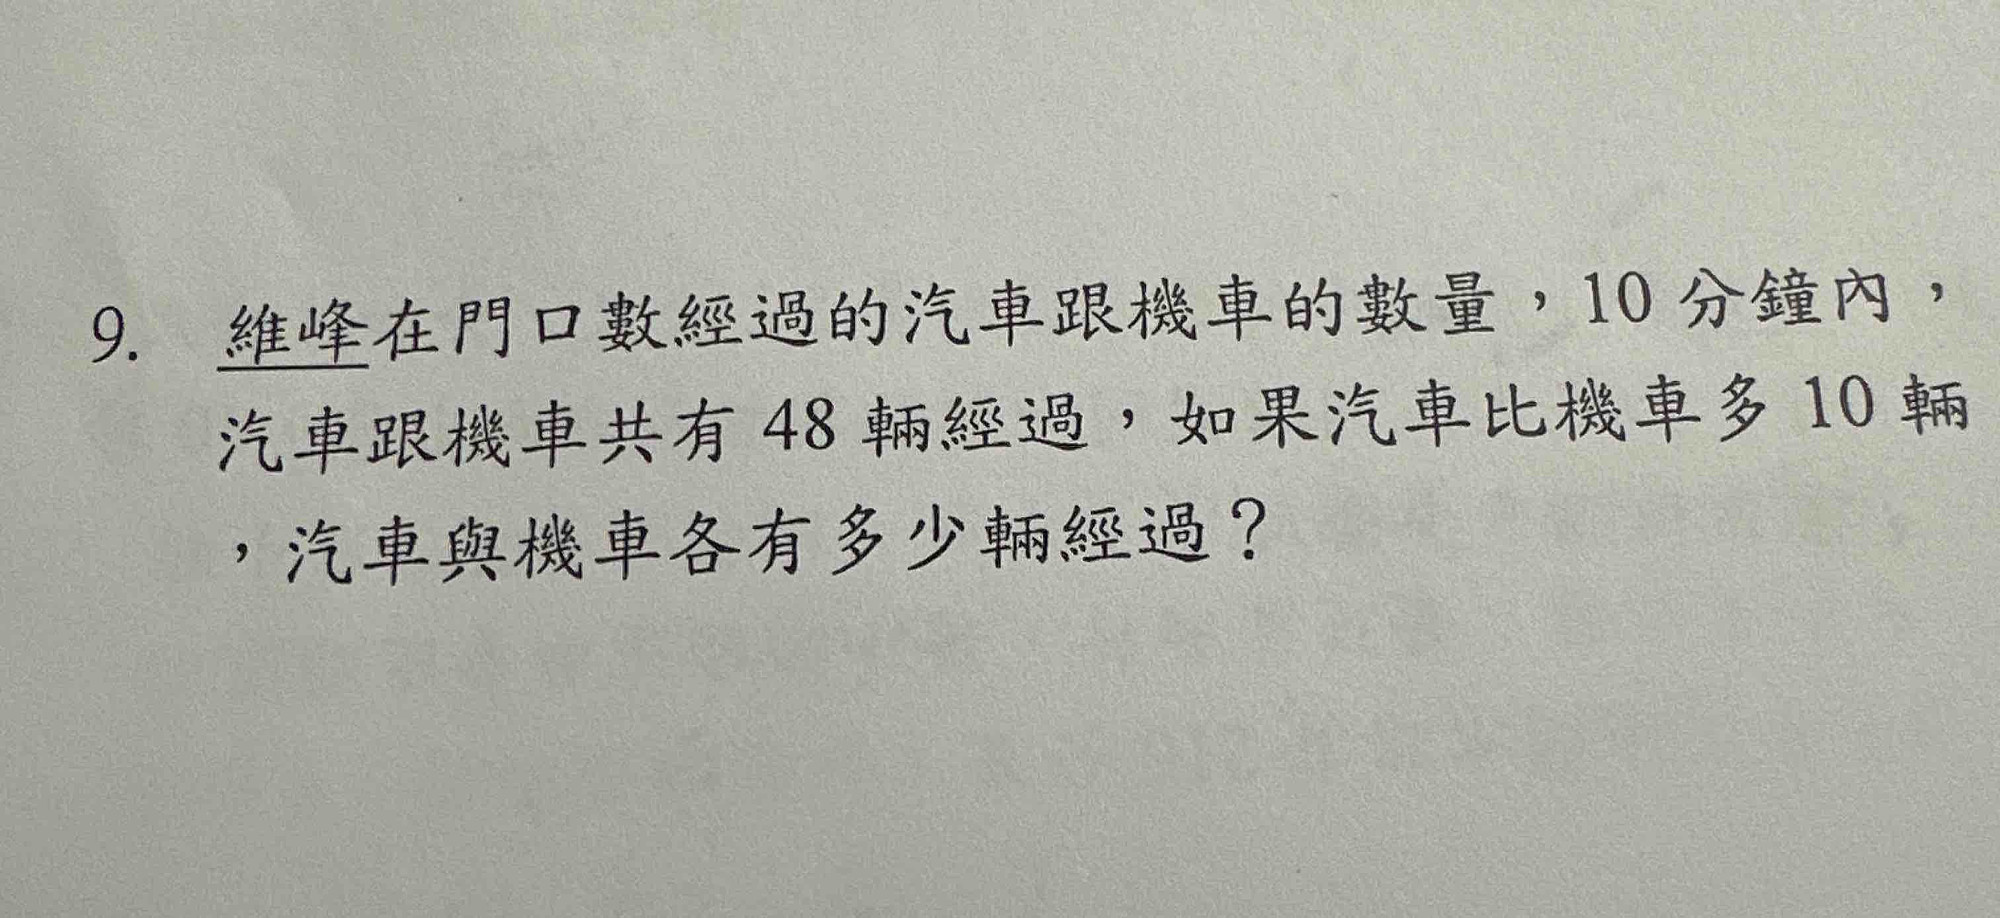 9. 維峰在門口數經過的汽車跟機車的數量，10 分鐘內，
汽車跟機車共有 48 輛經過，如果汽車比機車多 10 輛
，汽車與機車各有多少輛經過？